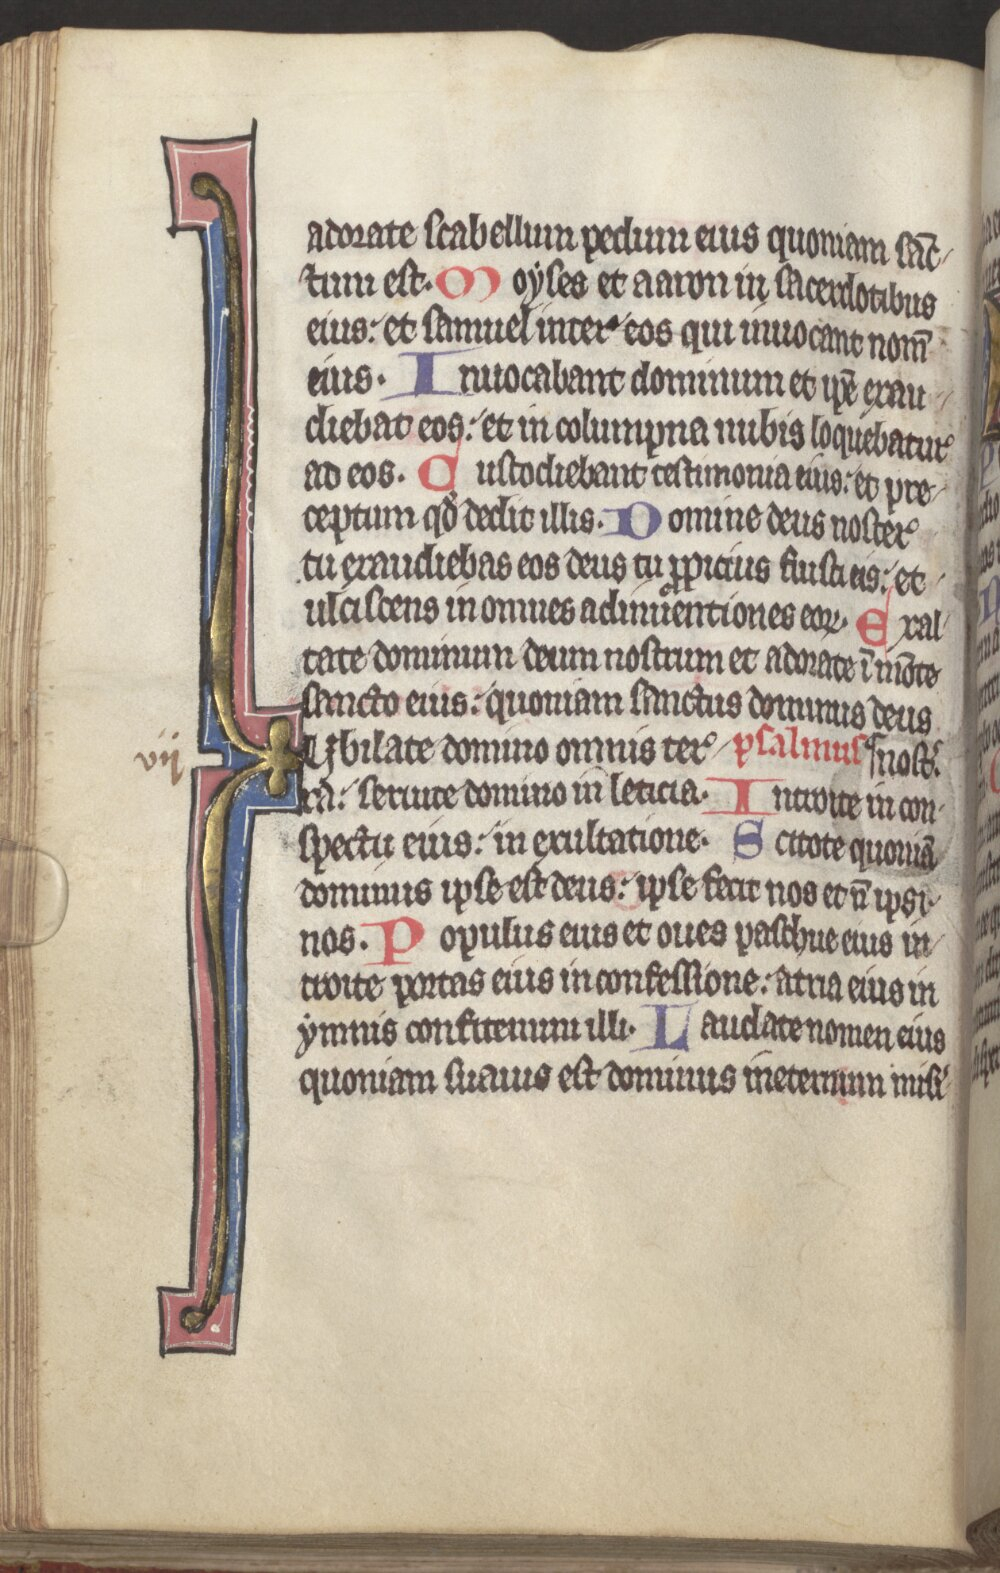 adorate scabellum pedum eius quoniam sāc
tum est. Moyses et aaron in sacerdotibus
eius: et samuel inter eos qui inuocant nom̄
eius. Inuocabant dominum et ip̄e exau
diebat eos: et in columpna nubis loquebatur
ad eos. Custodiebant testimonia eius: et pre
ceptum qd̄ dedit illis. Domine deus noster
tu exaudiebas eos deus tu ꝓpicius fuisti eis: et
ulciscens in omnes adinuentiones eoꝝ. Exal
tate dominum deum nostrum et adorate ī mōte
sancto eius: quoniam sanctus dominus deus
Jubilate domino omnis ter psalmus nost᷑.
vij
rā: seruite domino in leticia. Introite in con
spectu eius: in exultatione. Scitote quoniā
dominus ipse est deus: ipse fecit nos et n̄ ipsi
nos. Populus eius et oues paschue eius in
troite portas eius in confessione: atria eius in
ymnis confitemini illi. Laudate nomen eius
quoniam suauis est dominus ineternum mise᷑